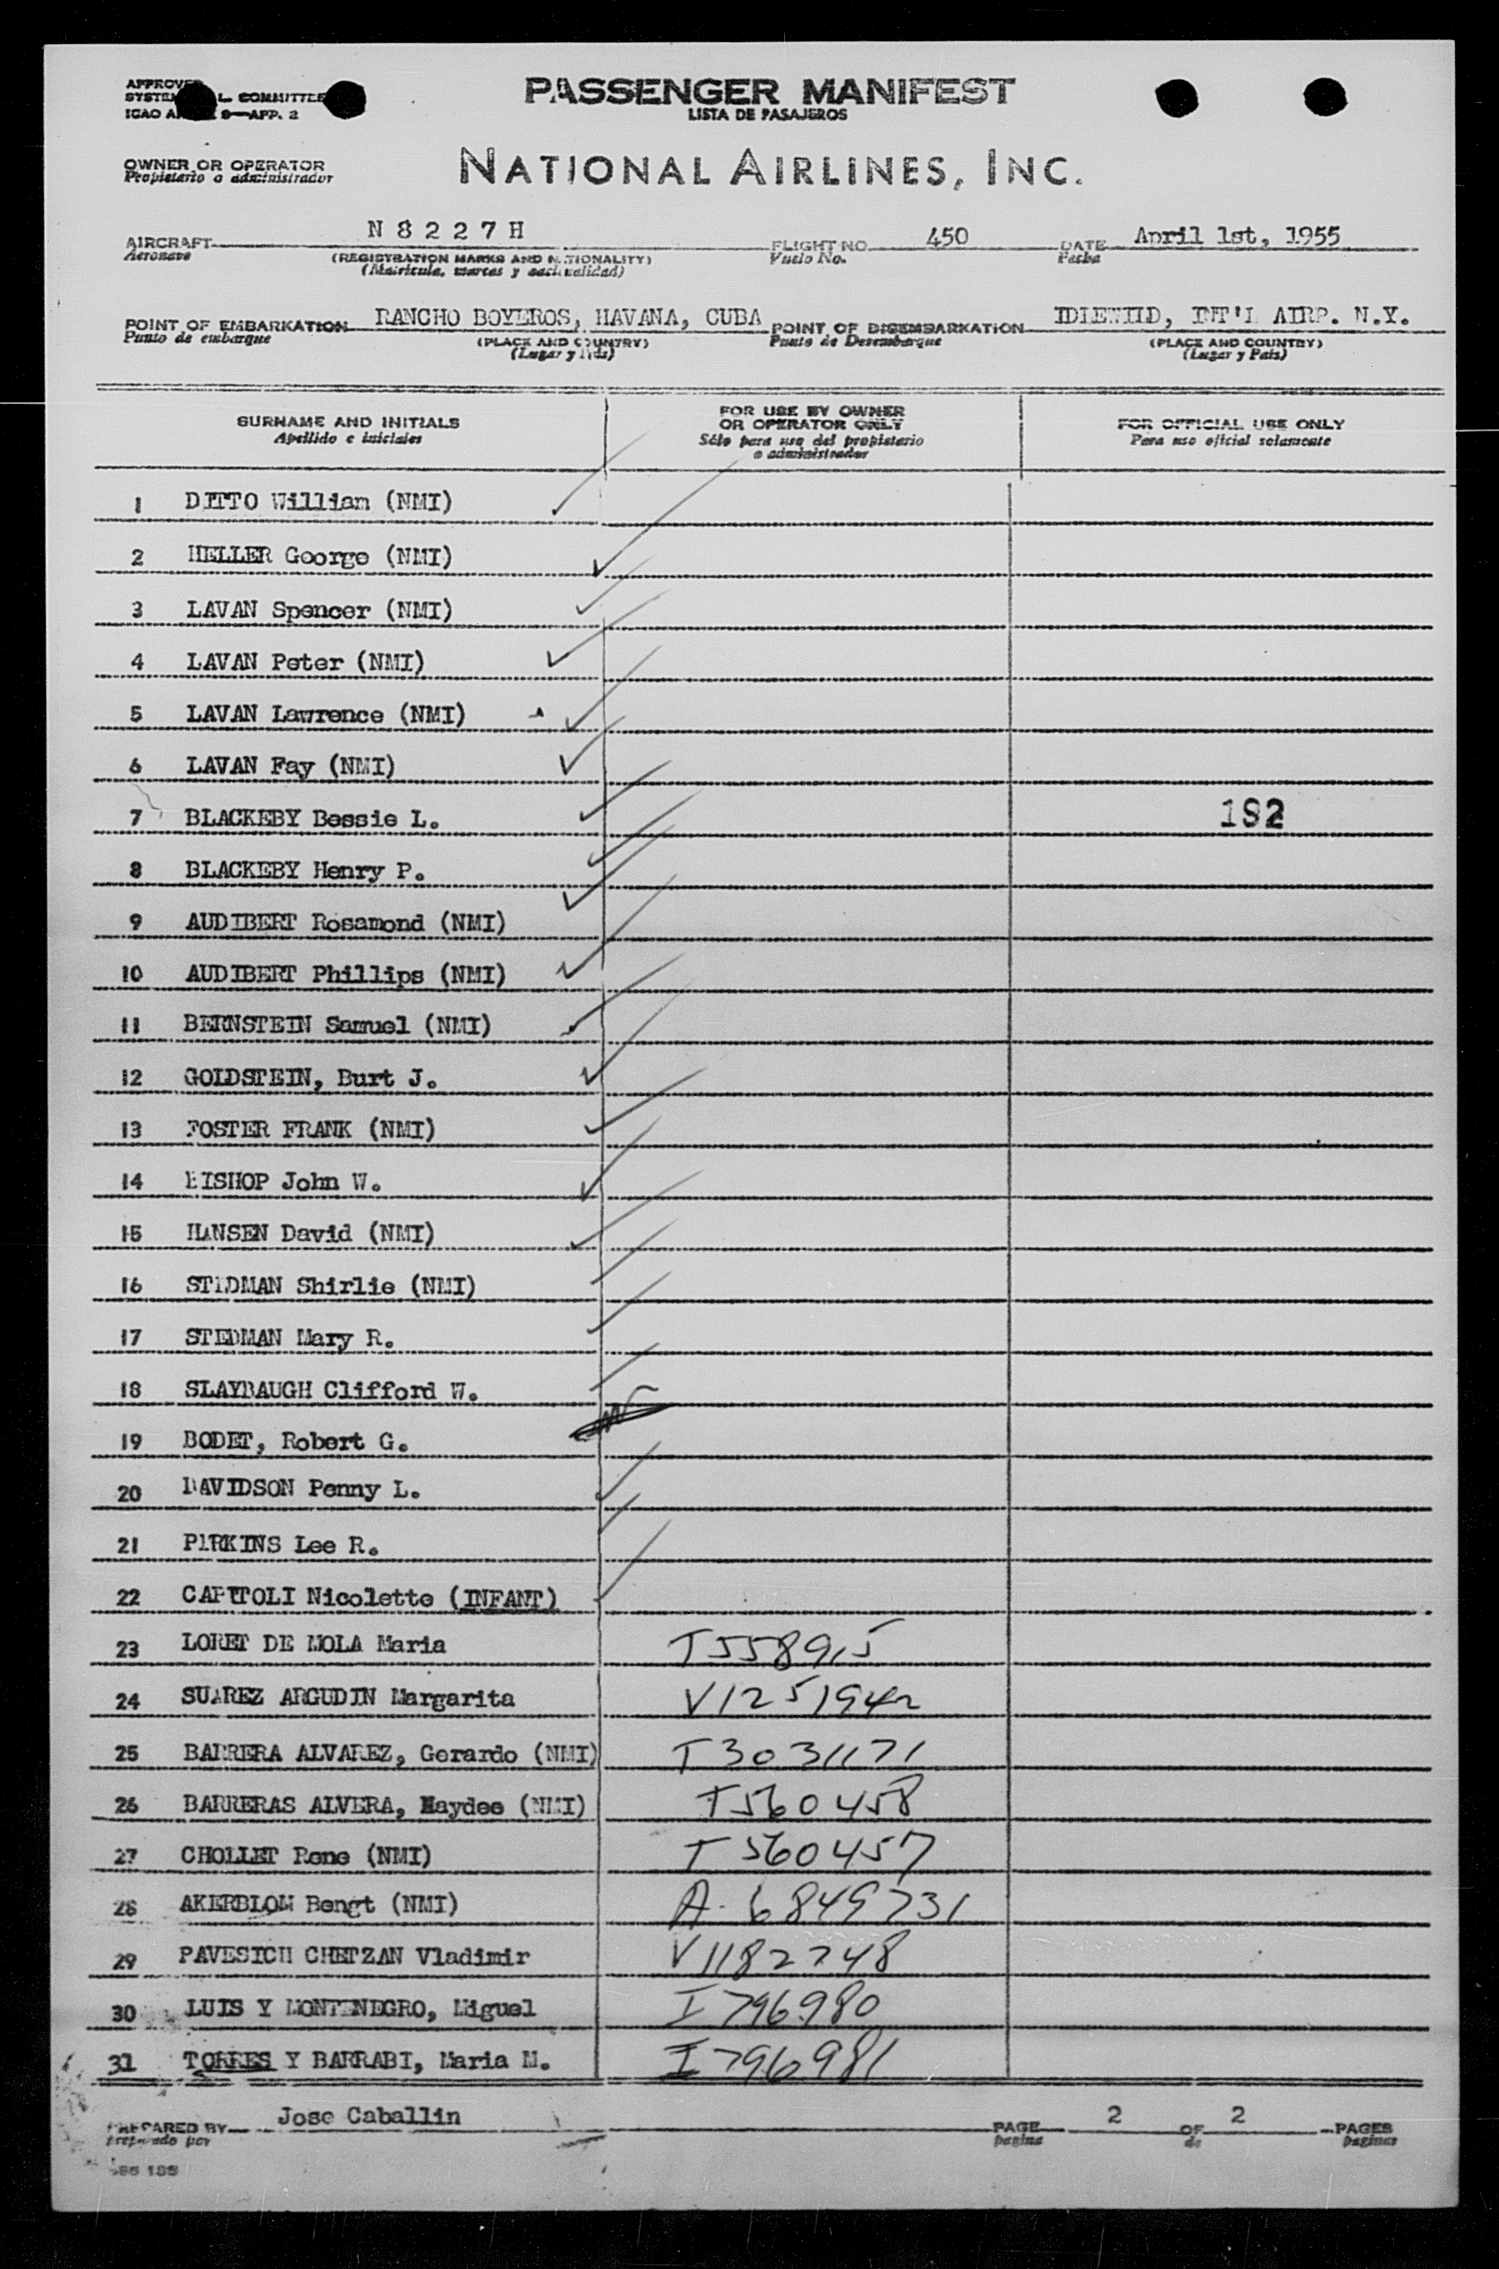 PASSENGER MANIFEST
LISTA DE PASAJEROS
COMMITTEE
APP. 2
OWNER OR OPERATOR
Propietario o administrador
NATIONAL AIRLINES, INC.
AIRCRAFT N 8 2 2 7 H FLIGHT NO. 450 DATE April 1st, 1955
Aeronave (REGISTRATION MARKS AND NATIONALITY) Vuelo No. Fecha
(Matrícula, marcas y nacionalidad)
POINT OF EMBARKATION RANCHO BOYEROS, HAVANA, CUBA POINT OF DISEMBARKATION IDLEWILD, INT'L AIRP. N.Y.
Punto de embarque (PLACE AND COUNTRY) Punto de Desembarque (PLACE AND COUNTRY)
(Lugar y País) (Lugar y País)
SURNAME AND INITIALS FOR USE BY OWNER OR OPERATOR ONLY FOR OFFICIAL USE ONLY
Apellido e iniciales Sólo para uso del propietario o administrador Para uso oficial solamente
1 DITTO William (NMI)
2 HELLER George (NMI)
3 LAVAN Spencer (NMI)
4 LAVAN Peter (NMI)
5 LAVAN Lawrence (NMI)
6 LAVAN Fay (NMI)
7 BLACKEBY Bessie L. 192
8 BLACKEBY Henry P.
9 AUDIBERT Rosamond (NMI)
10 AUDIBERT Phillips (NMI)
11 BERNSTEIN Samuel (NMI)
12 GOLDSTEIN, Burt J.
13 FOSTER FRANK (NMI)
14 BISHOP John W.
15 HANSEN David (NMI)
16 STEDMAN Shirlie (NMI)
17 STEDMAN Mary R.
18 SLAYBAUGH Clifford W.
19 BODET, Robert G.
20 DAVIDSON Penny L.
21 PERKINS Lee R.
22 CAPITOLI Nicolette (INFANT)
23 LORET DE MOLA Maria T558915
24 SUAREZ ARGUDIN Margarita V1251942
25 BARRERA ALVAREZ, Gerardo (NMI) T3031171
26 BARRERAS ALVERA, Haydee (NMI) T560458
27 CHOLLET Rene (NMI) T560457
28 AKERBLOM Bengt (NMI) A-6849731
29 PAVESICH CHETZAN Vladimir V1182748
30 LUIS Y MONTENEGRO, Miguel I796980
31 TORRES Y BARRABI, Maria M. I796981
PREPARED BY Jose Caballin PAGE 2 OF 2 PAGES
preparado por pagina de paginas